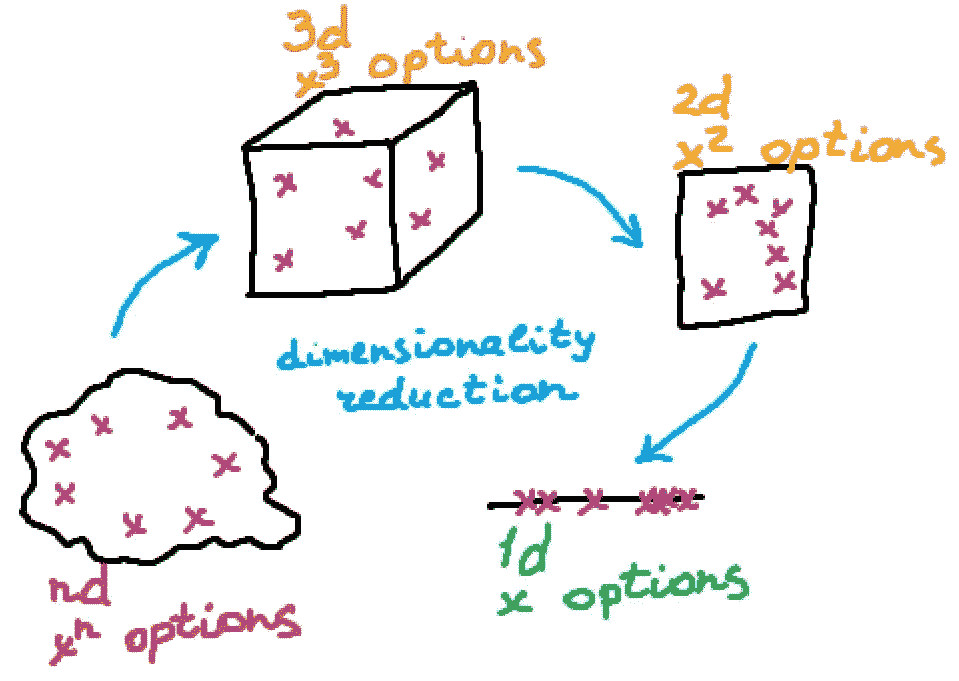 3d
x³ options
2d
x² options
dimensionality
reduction
1d
x options
nd
xⁿ options